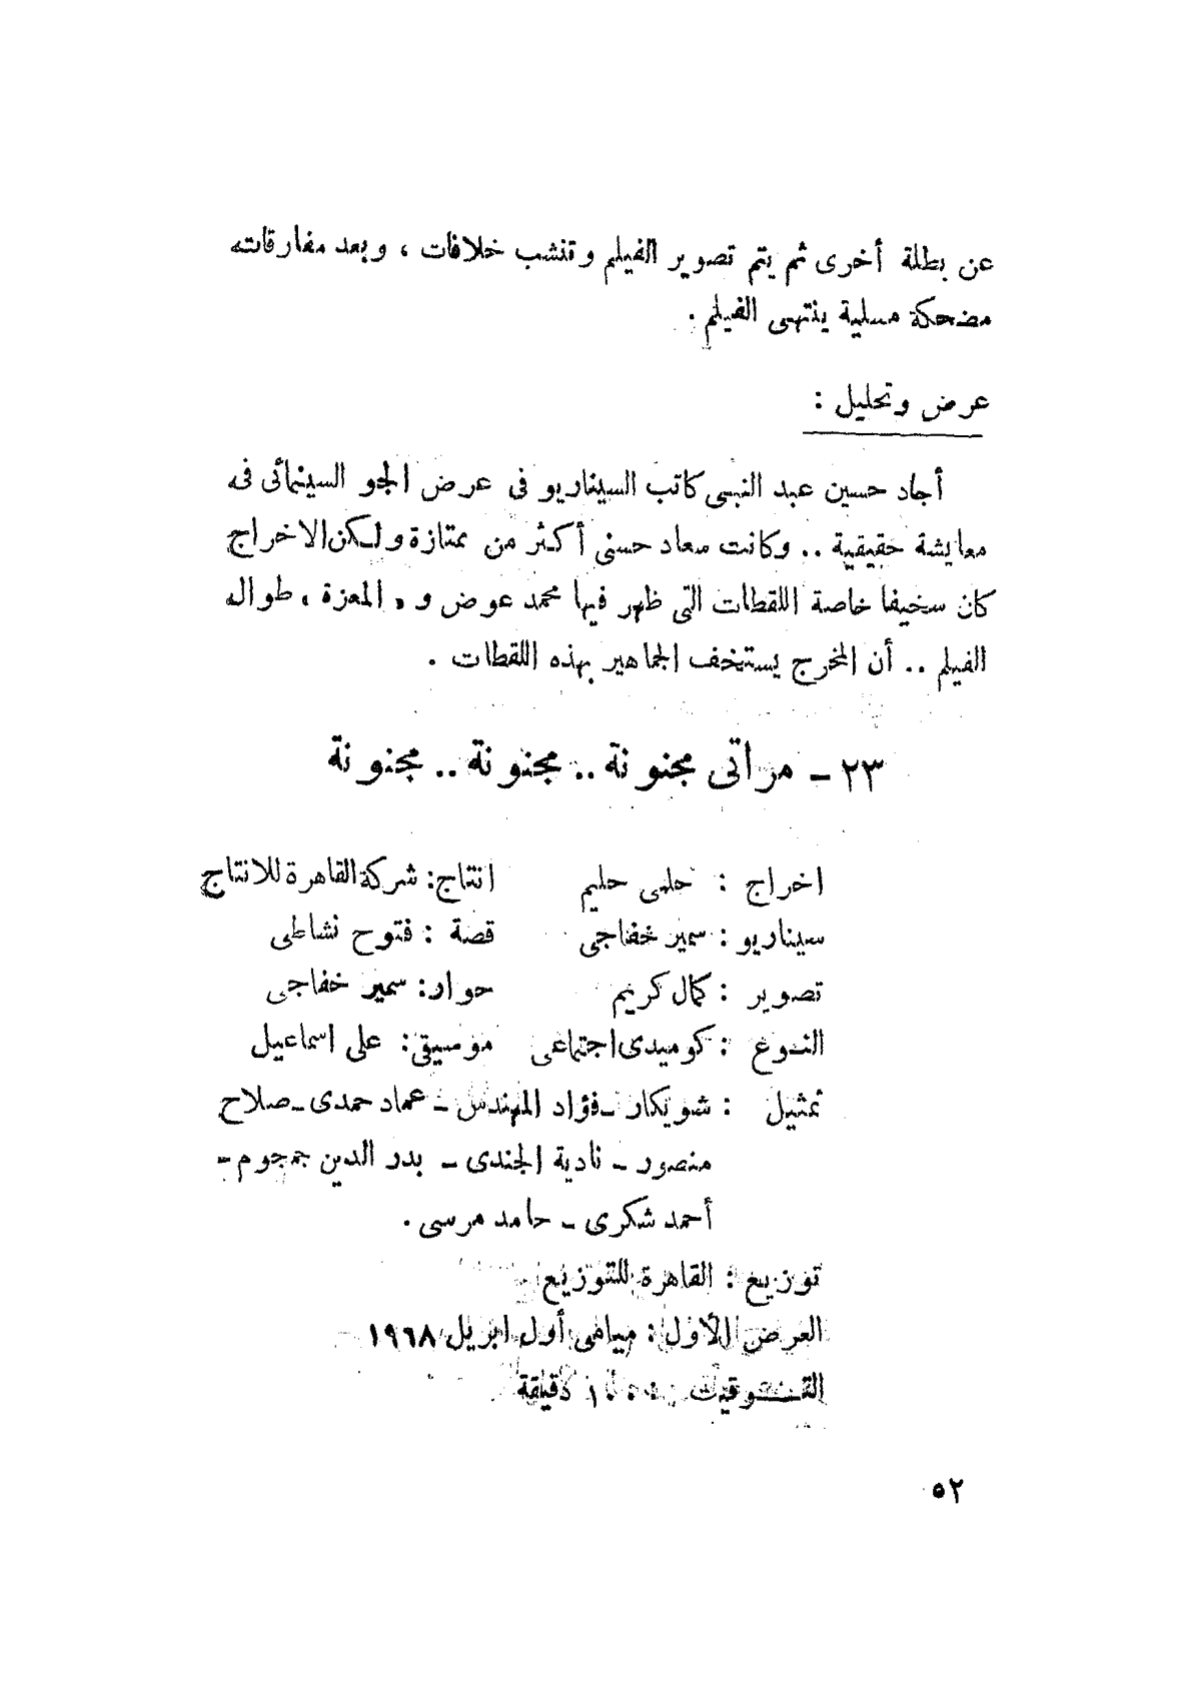 عن بطلة أخرى ثم يتم تصوير الفيلم وتنشب خلافات ، وبعد مفارقاته
مضحكة مسلية ينتهى الفيلم .
عرض وتحليل :
أجاد حسين عبد النبى كاتب السيناريو فى عرض الجو السينمائى فى
معايشة حقيقية .. وكانت سعاد حسنى أكثر من ممتازة ولكن الاخراج
كان سخيفا خاصة اللقطات التى ظهر فيها محمد عوض و « المعزة » طوال
الفيلم .. أن المخرج يستخف الجماهير بهذه اللقطات .
٢٣ - مراتى مجنونة .. مجنونة .. مجنونة
اخراج : حلمى حليم انتاج : شركة القاهرة للانتاج
سيناريو : سمير خفاجى قصة : فتوح نشاطى
تصوير : كمال كريم حوار : سمير خفاجى
النوع : كوميدى اجتماعى موسيقى : على اسماعيل
تمثيل : شويكار - فؤاد المهندس - عماد حمدى - صلاح
منصور - نادية الجندى - بدر الدين جمجوم -
أحمد شكرى - حامد مرسى .
توزيع : القاهرة للتوزيع
العرض الأول : ميامى أول ابريل ١٩٦٨
التوقيت : دقيقة
٥٢